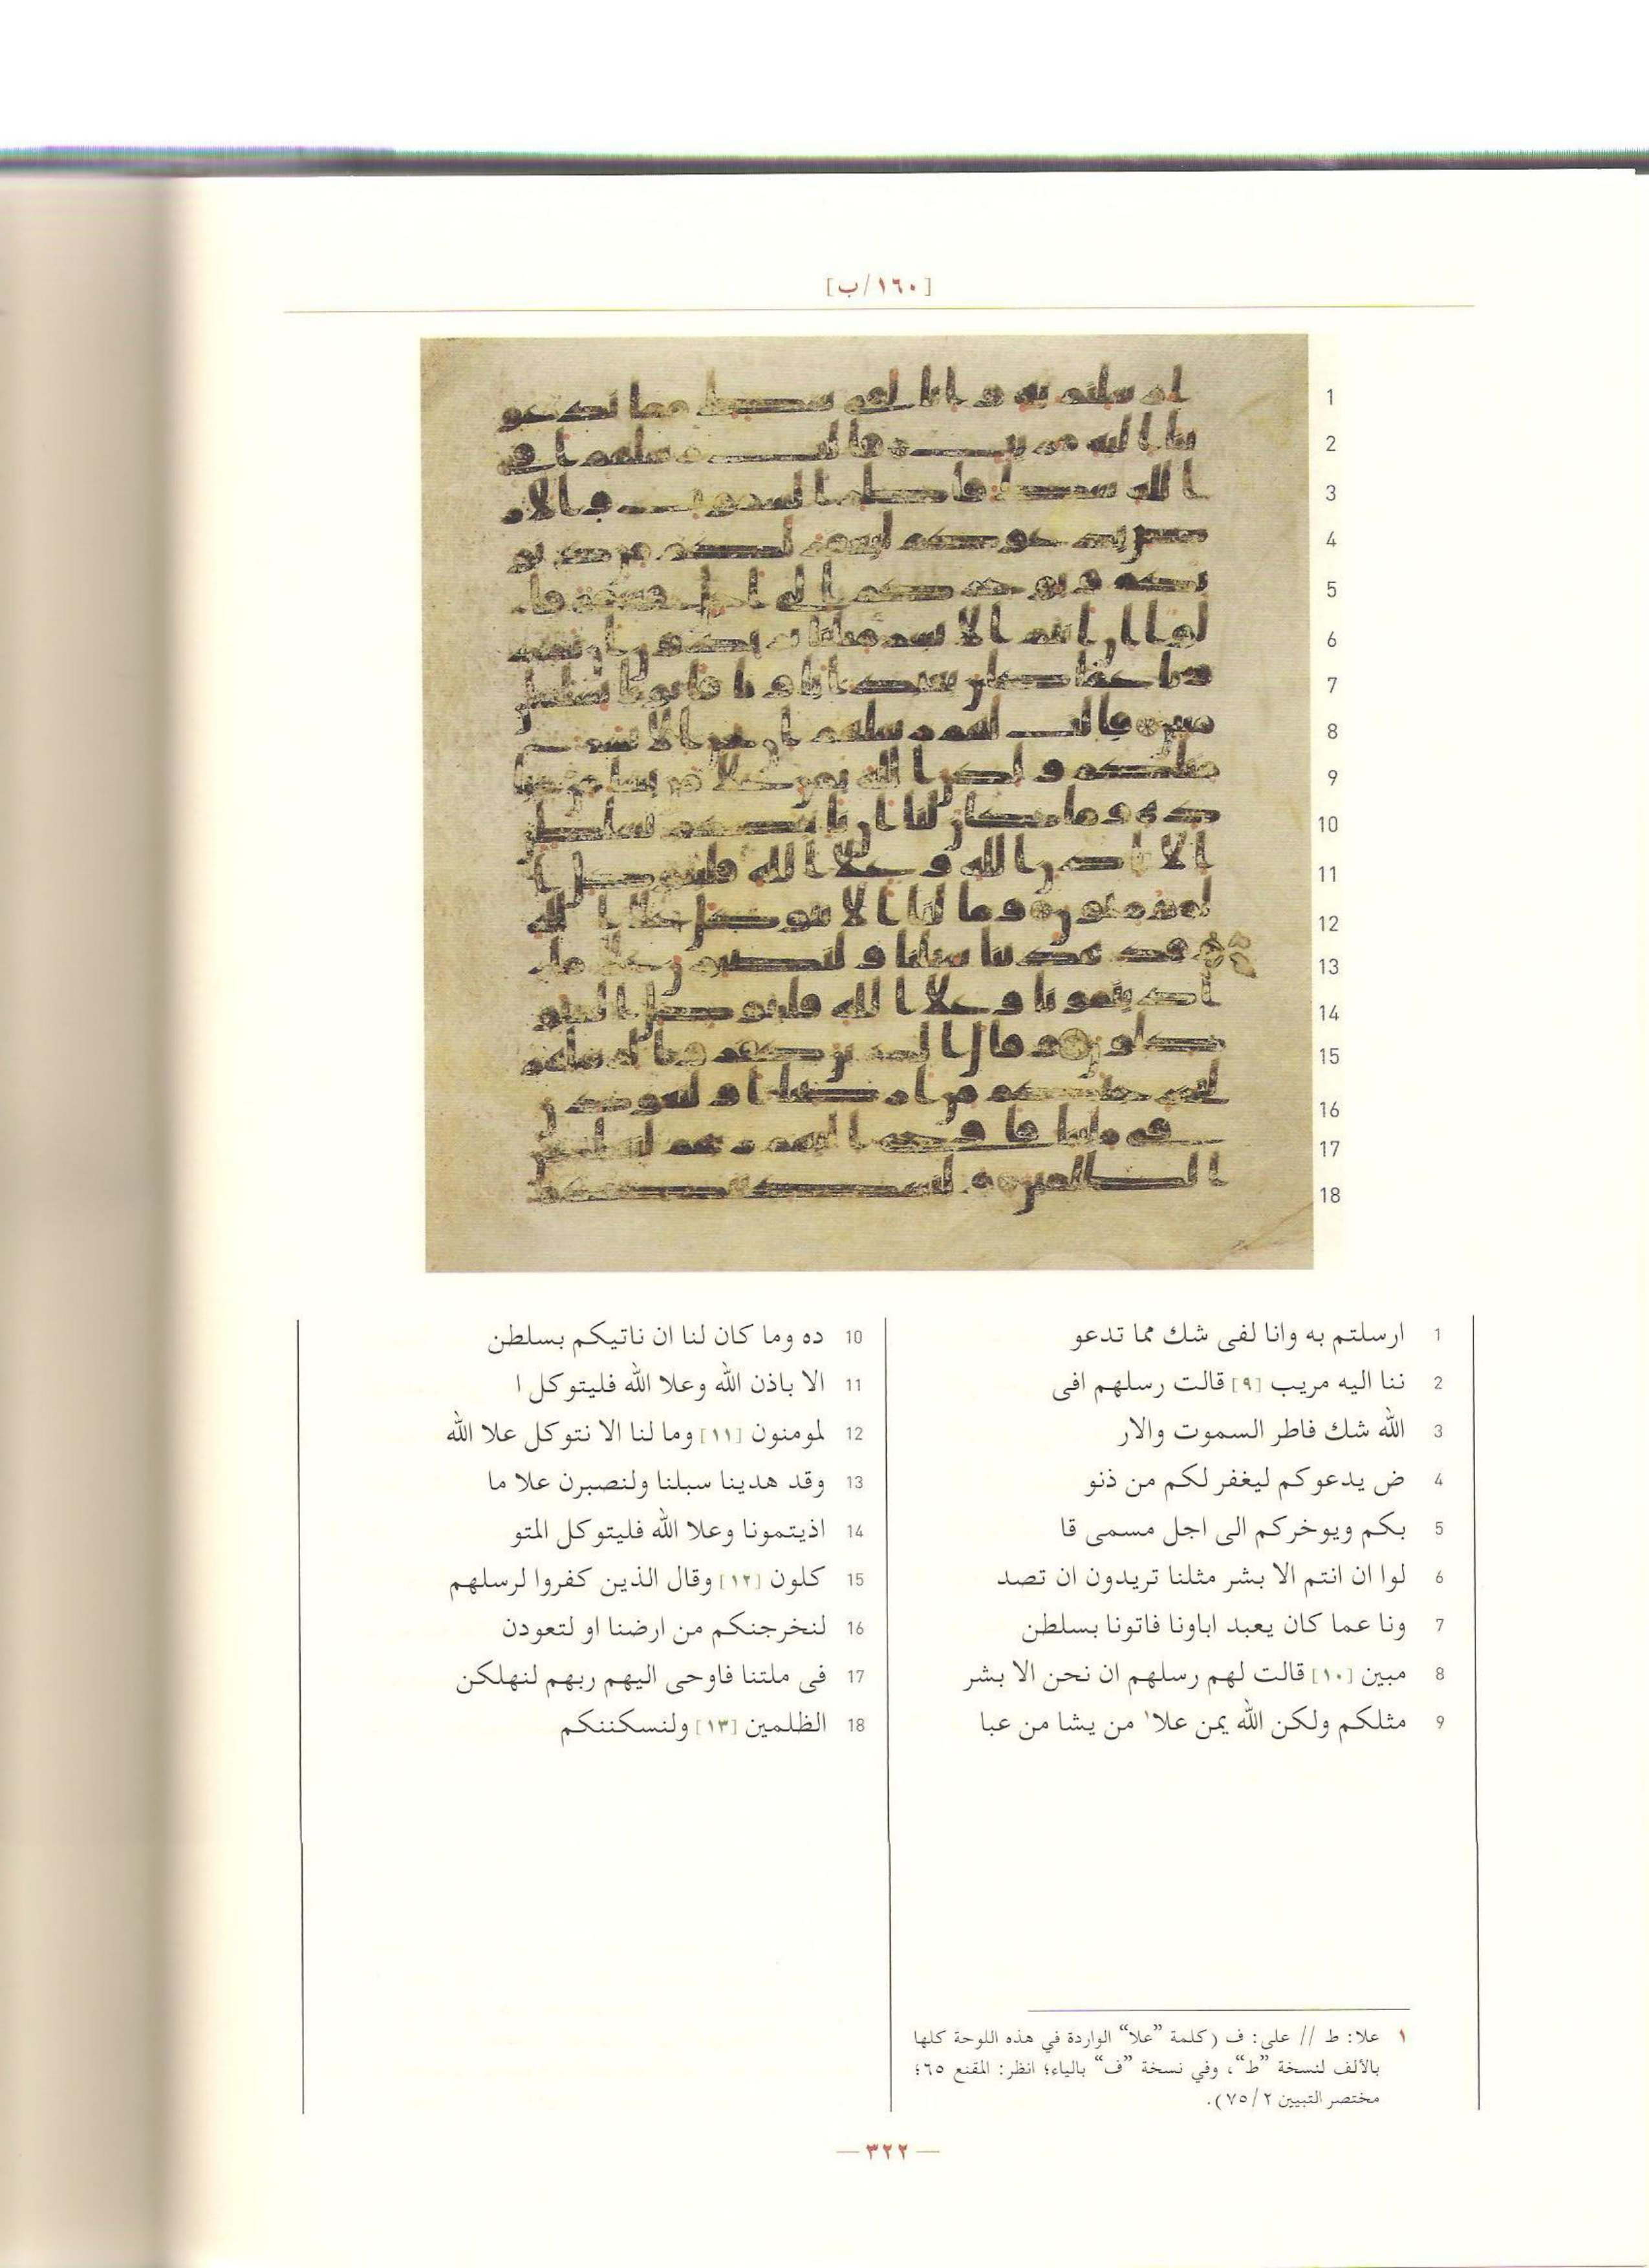 [١٦٠/ب]
1
2
3
4
5
6
7
8
9
10
11
12
13
14
15
16
17
18
1 ارسلتم به وانا لفى شك مما تدعو
2 ننا اليه مريب [٩] قالت رسلهم افى
3 الله شك فاطر السموت والار
4 ض يدعوكم ليغفر لكم من ذنو
5 بكم ويوخركم الى اجل مسمى قا
6 لوا ان انتم الا بشر مثلنا تريدون ان تصد
7 ونا عما كان يعبد اباونا فاتونا بسلطن
8 مبين [١٠] قالت لهم رسلهم ان نحن الا بشر
9 مثلكم ولكن الله يمن علا١ من يشا من عبا
10 ده وما كان لنا ان ناتيكم بسلطن
11 الا باذن الله وعلا الله فليتوكل ا
12 لمومنون [١١] وما لنا الا نتوكل علا الله
13 وقد هدينا سبلنا ولنصبرن علا ما
14 اذيتمونا وعلا الله فليتوكل المتو
15 كلون [١٢] وقال الذين كفروا لرسلهم
16 لنخرجنكم من ارضنا او لتعودن
17 فى ملتنا فاوحى اليهم ربهم لنهلكن
18 الظلمين [١٣] ولنسكننكم
١ علا: ط // على: ف (كلمة ”علا“ الواردة في هذه اللوحة كلها
بالألف لنسخة ”ط“، وفي نسخة ”ف“ بالياء؛ انظر: المقنع ٦٥؛
مختصر التبيين ٧٥/٢).
— ٣٢٢ —